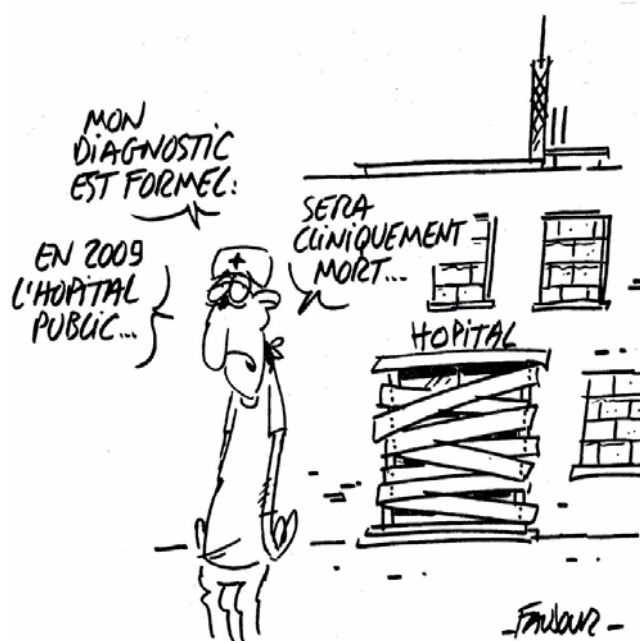 MON
DIAGNOSTIC
EST FORMEL:
EN 2009
L'HOPITAL
PUBLIC...
SERA
CLINIQUEMENT
MORT...
HOPITAL
_FAUJOUR_